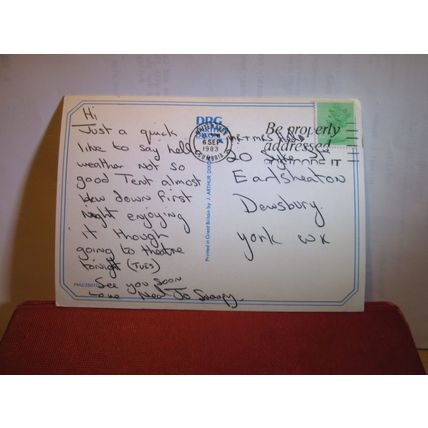 Hi
Just a quick
like to say hello
weather not so
good Tent almost
blew down first
night enjoying
it though
going to theatre
tonight (TUES)
See you soon
Love Jo Snoopy
DRG
Printed in Great Britain by J. ARTHUR DIXON
6 SEP
1983
Be properly
addressed
POSTCODE IT
20
Earlsheaton
Dewsbury
York WK